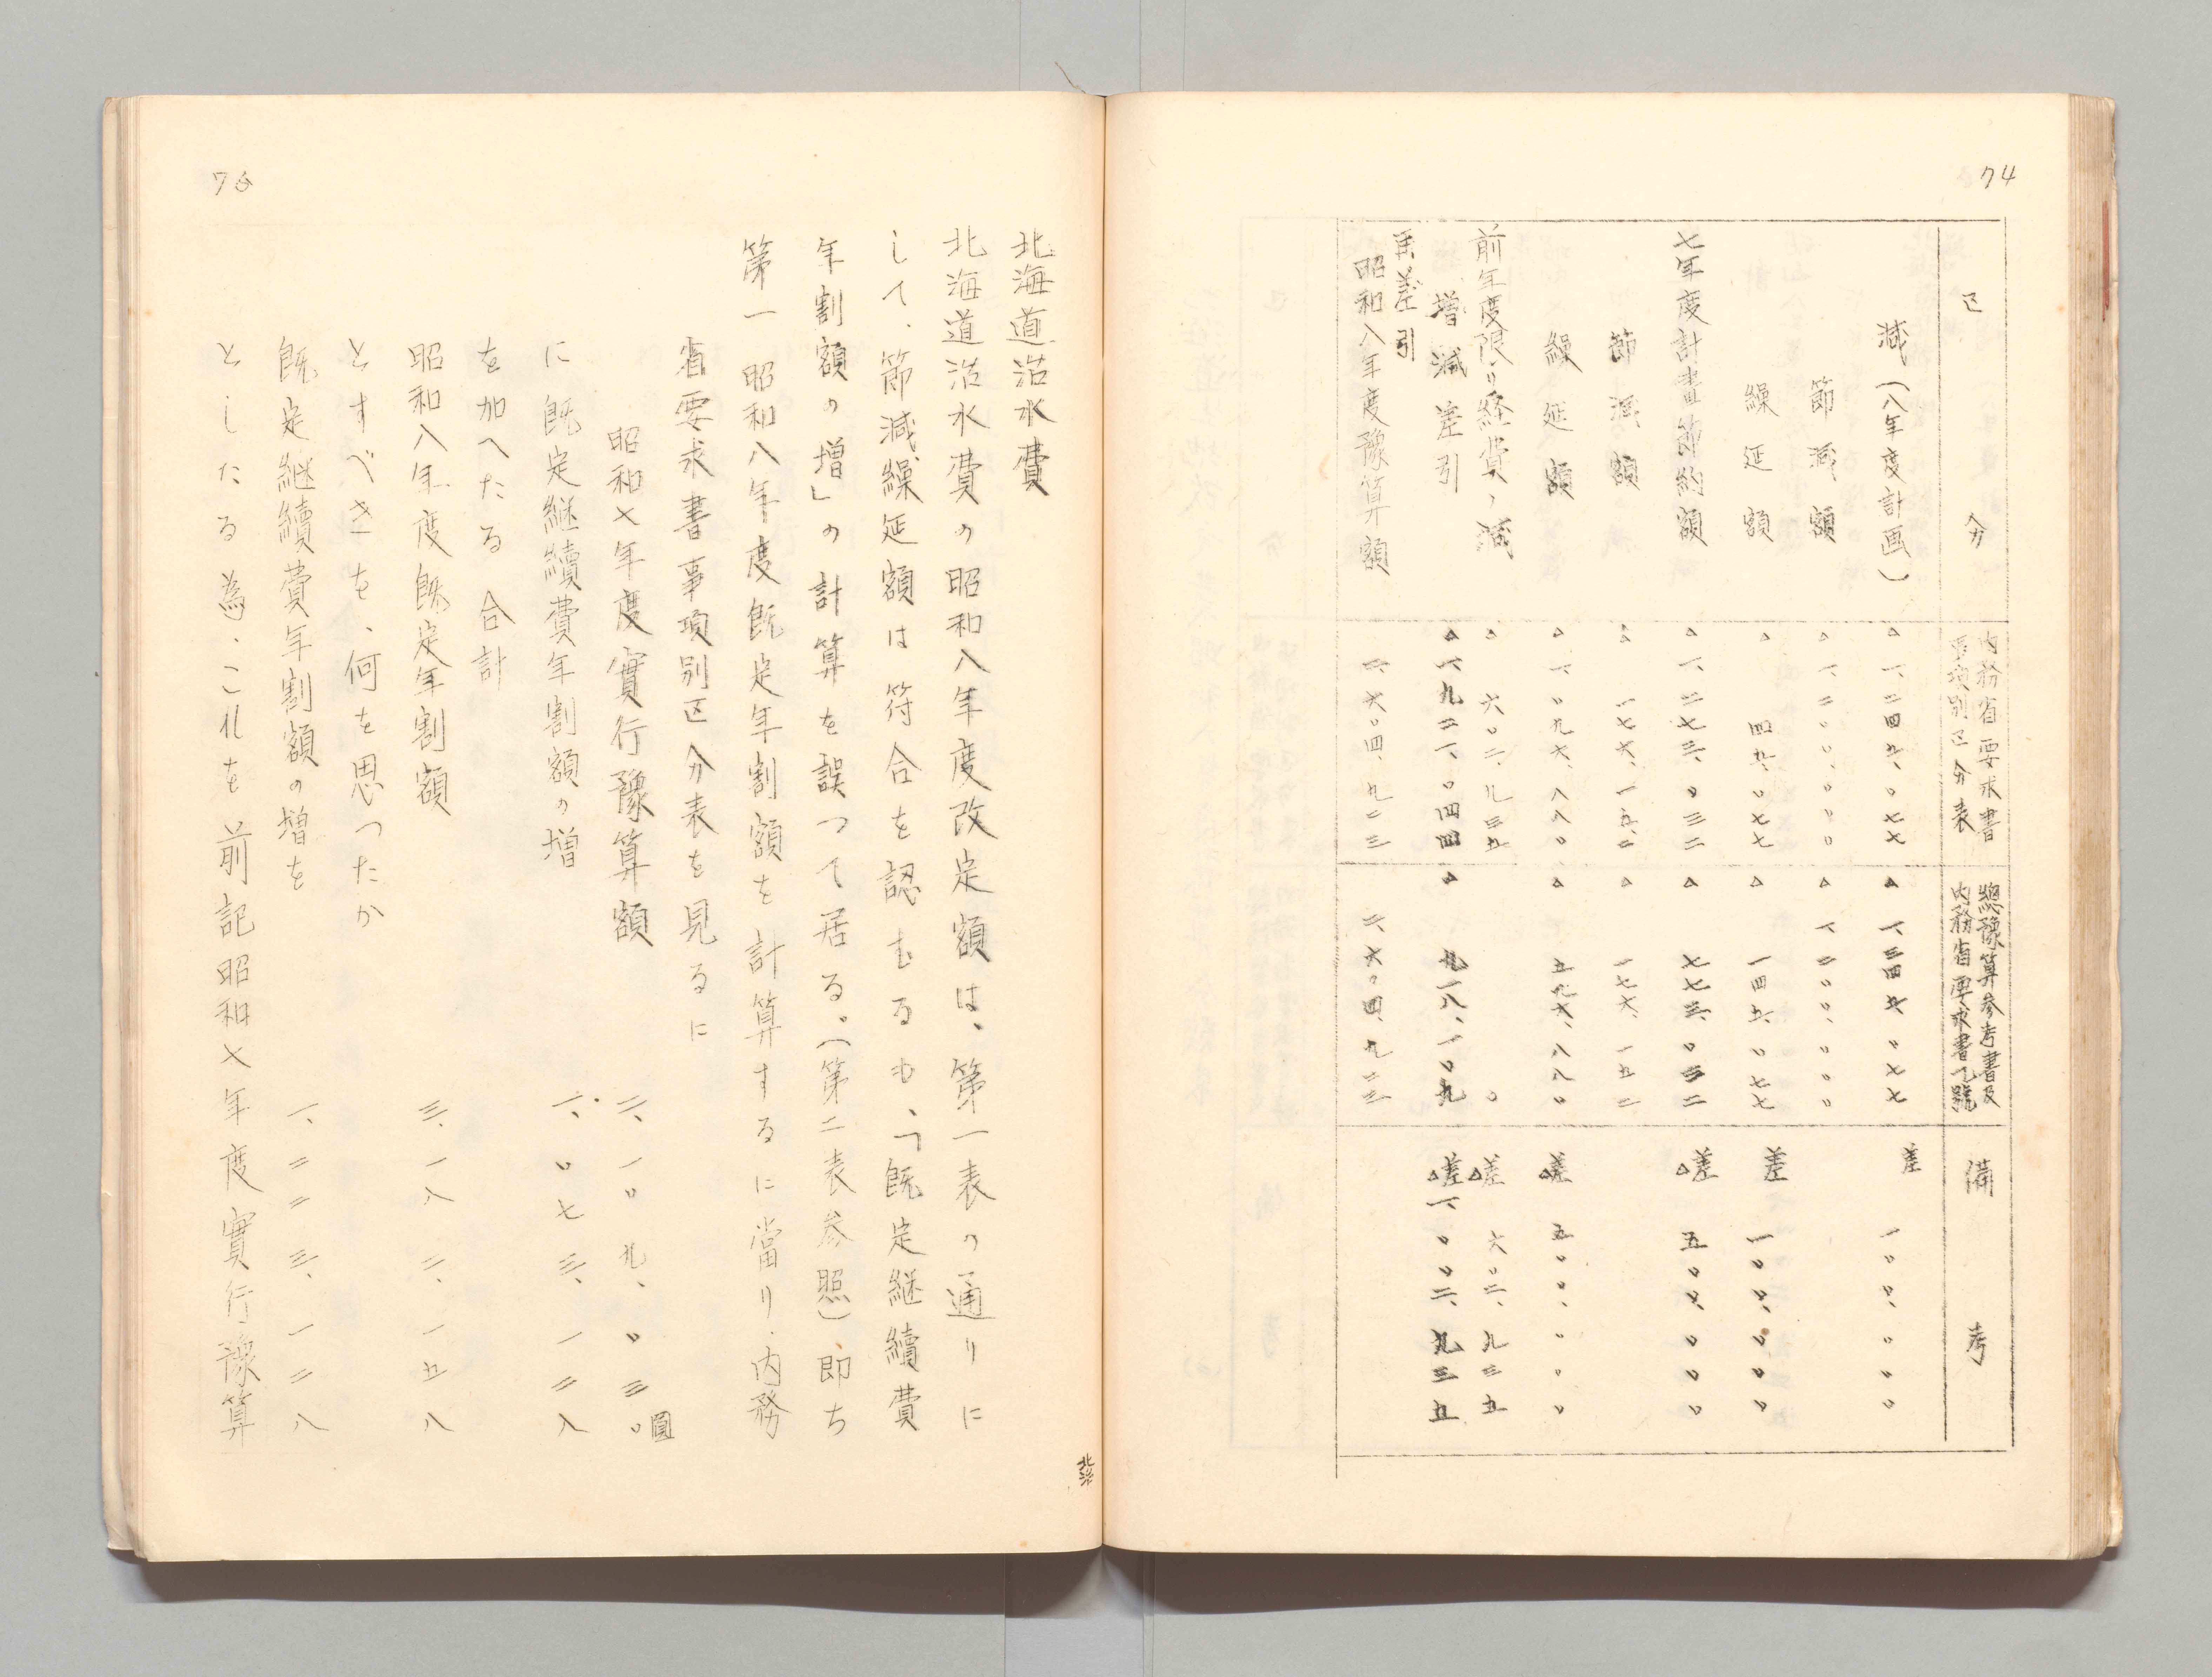 74
区分
内務省要求書
事項別区分表
總豫算参考書及
内務省要求書乙號
備考
減(八年度計画) △一、二四九、〇七七 △一、三四九、〇七七 差 一〇〇、〇〇〇
節減額 △一、二〇〇、〇〇〇 △一、二〇〇、〇〇〇
繰延額 △四九、〇七七 △一四九、〇七七 差 一〇〇、〇〇〇
七年度計畫節約額 △一、二七三、〇三二 △七七三、〇三二 差△五〇〇、〇〇〇
節減額 △一七六、一五二 △一七六、一五二
繰延額 △一、〇九六、八八〇 △五九六、八八〇 差△五〇〇、〇〇〇
前年度限リ経費ノ減 △六〇二、九三五 〇 差△六〇二、九三五
増減差引 △一、九二一、〇四四 △九一八、一〇九 差△一、〇〇二、九三五
再差引
昭和八年度豫算額 二、六〇四、九二三 二、六〇四、九二三
75
北海道治水費
北海道治水費の昭和八年度改定額は、第一表の通りに
して、節減繰延額は符合を認むるも、「既定継續費
年割額の増」の計算を誤つて居る。(第二表参照)、即ち
第一 昭和八年度既定年割額を計算するに當り、内務
省要求書事項別区分表を見るに
昭和七年度實行豫算額 二、一〇九、〇三〇圓
に既定継續費年割額の増 一、〇七三、一二八
を加へたる合計
昭和八年度既定年割額 三、一八二、一五八
とすべきを、何を思つたか
既定継續費年割額の増を 一、二二三、一二八
としたる為、これを前記昭和七年度實行豫算
北治